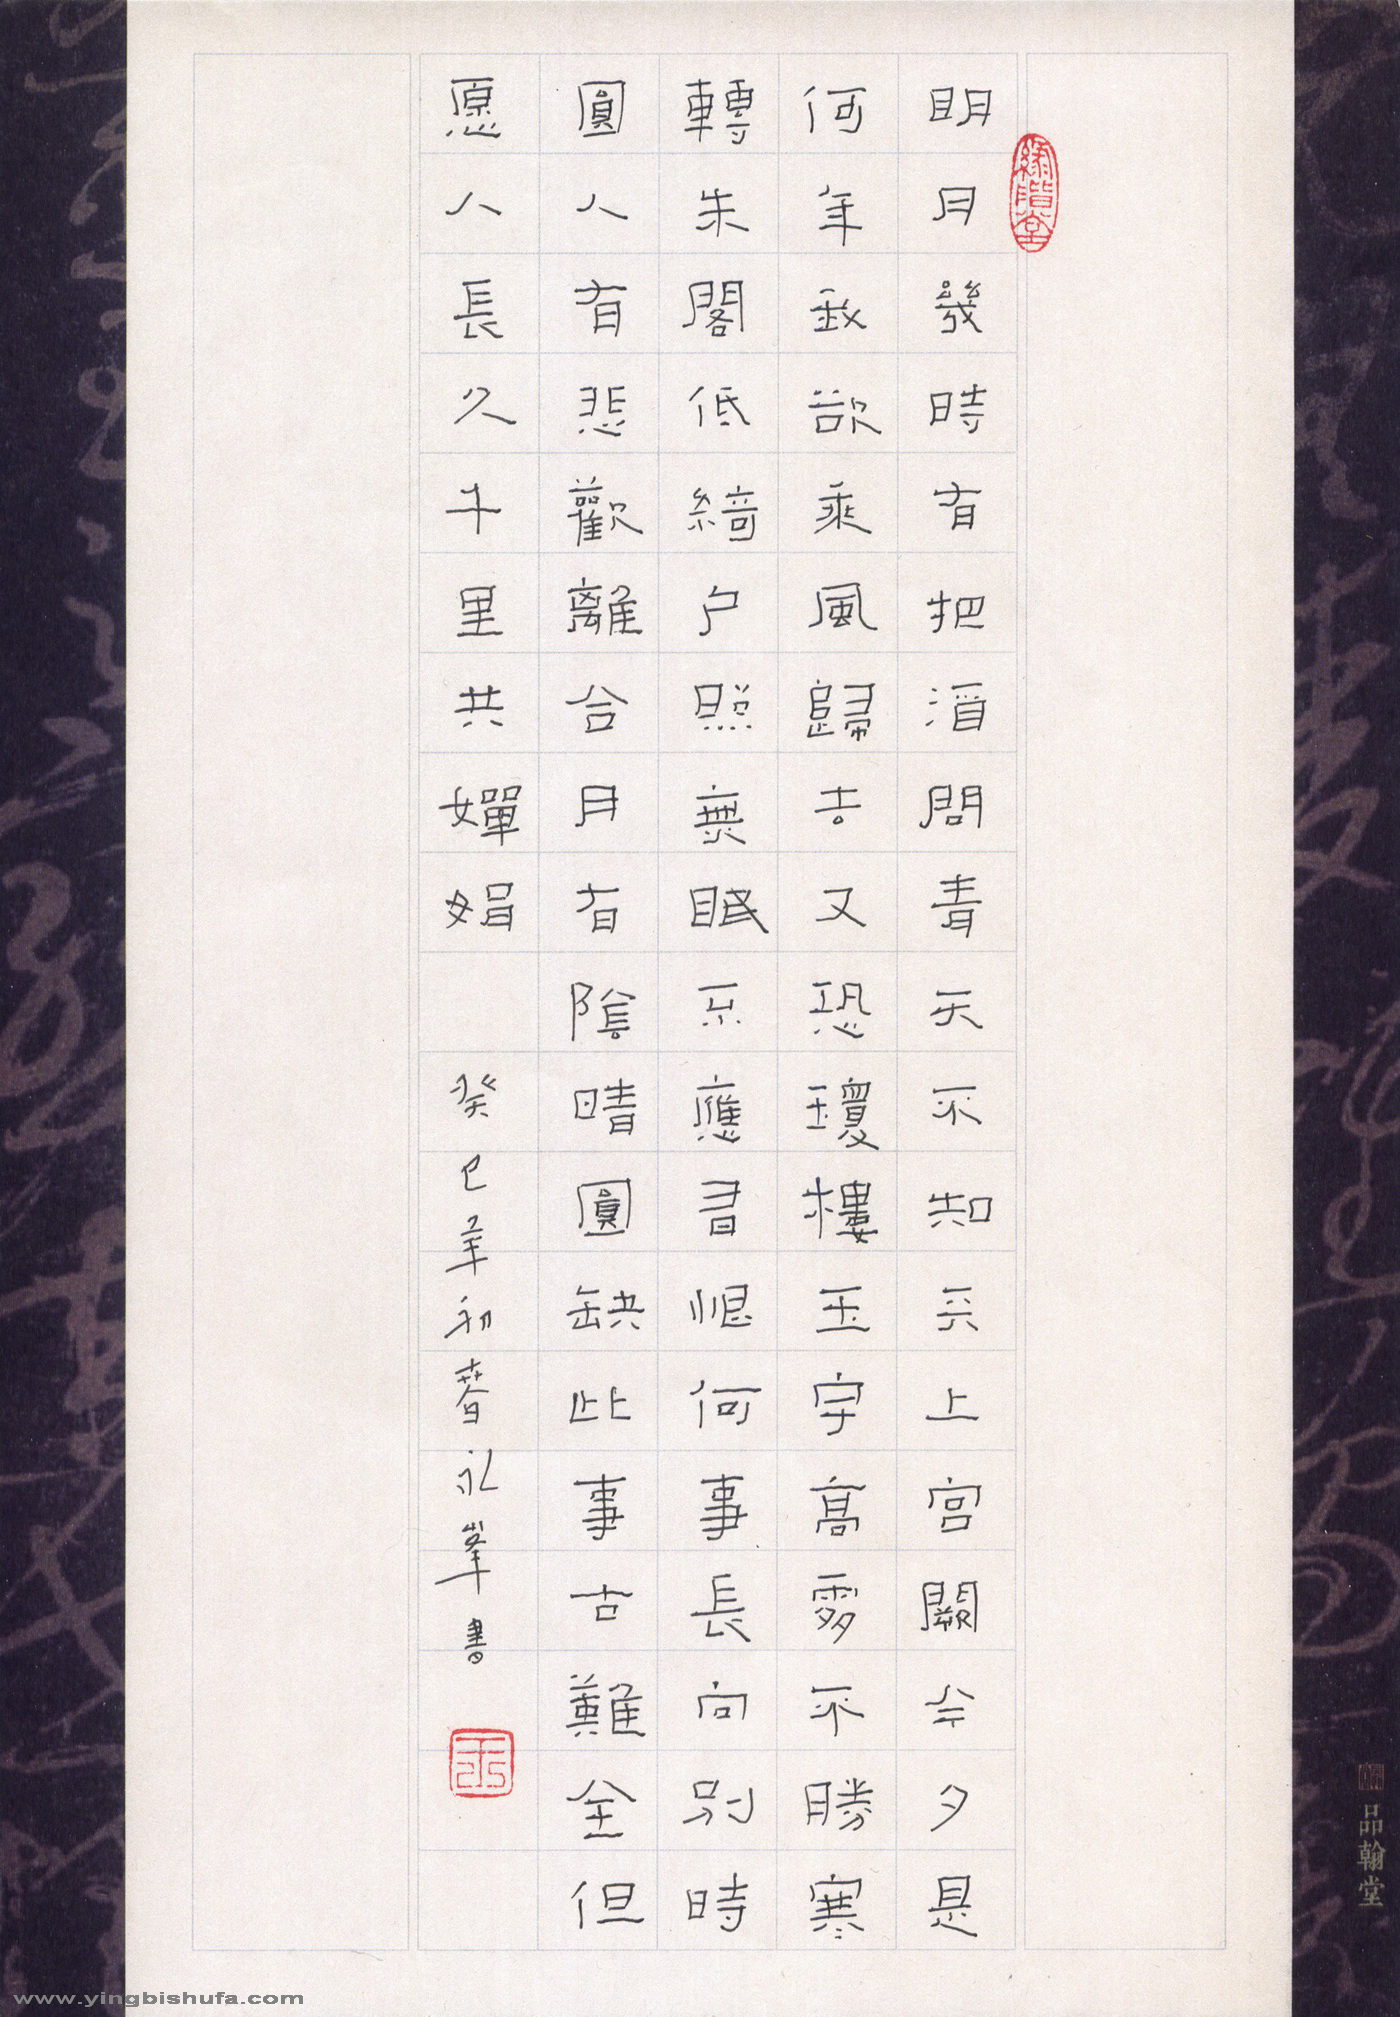 明月幾時有把酒問青天不知天上宮闕今夕是
何年我欲乘風歸去又恐瓊樓玉宇高處不勝寒
轉朱閣低綺户照無眠不應有恨何事長向別時
圓人有悲歡離合月有陰晴圓缺此事古難全但
愿人長久千里共嬋娟
癸巳年初春永峯書
品翰堂
www.yingbishufa.com